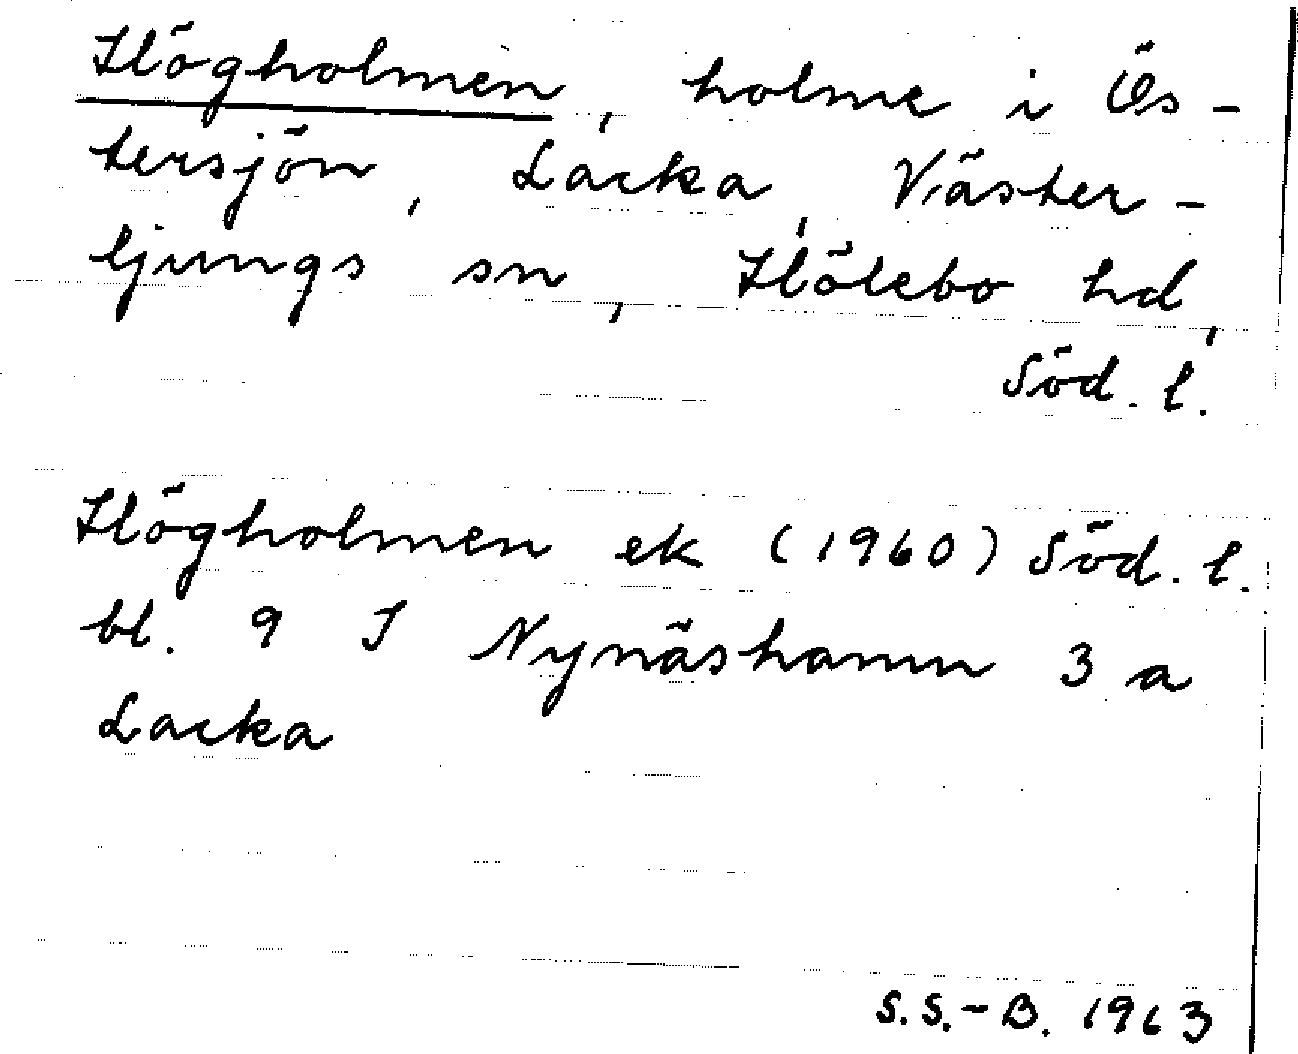 Högholmen, holme i Ös-
tersjön, Lacka, Väster-
ljungs sn, Hölebo hd,
Söd. l.
Högholmen ek (1960) Söd. l.
bl. 9 I Nynäshamn 3 a
Lacka
S.S.-B. 1963